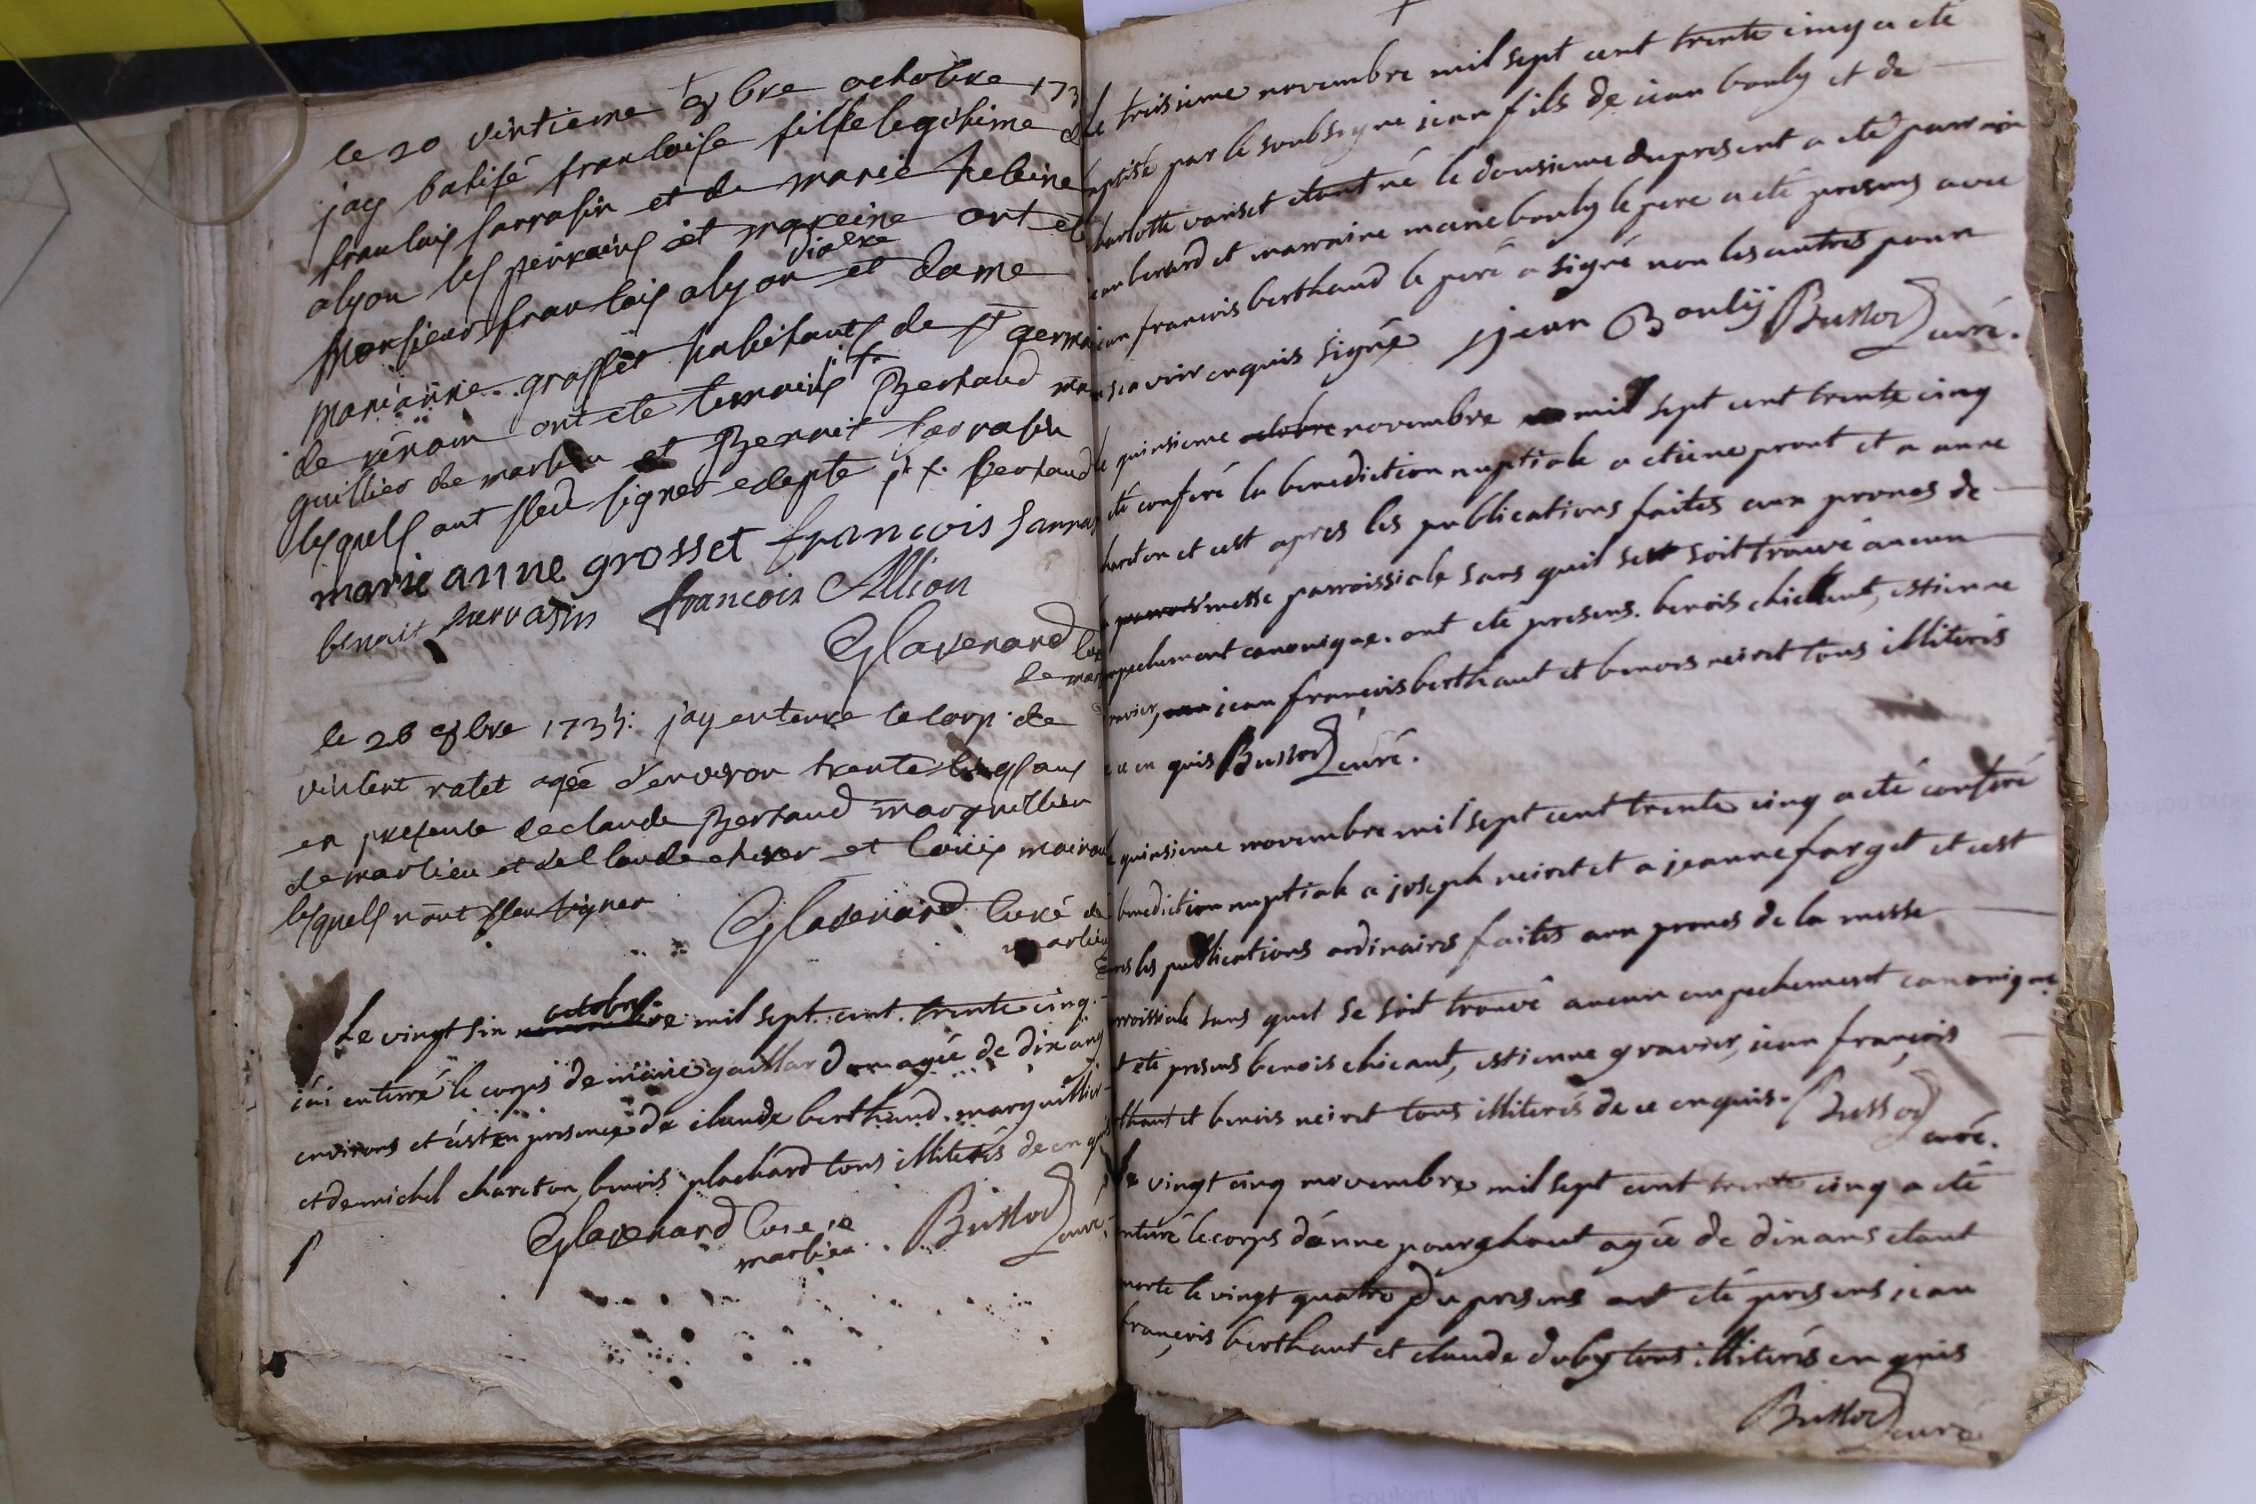 le 20 vintieme 8bre octobre 173
jay batisé francoise fille legitime de
francois sarrasin et de marie heleine
alyon les peirrains et mareine ont ete
dialre
Monsieur francois alyon et dame
marianne grosset habitants de st germain
de renom ont ete temoins j: f: Bertaud mar
guillier de marlieu et Benoit sarrasin
lesquels ont sceu signer exepte j: f: bertaud
marie anne grosset francois sarras
benoit sarrasin francois Allion
Glavenard cure
de mar
le 26 8bre 1735: j'ay enterre le corp de
vincent ratet agée d'environ trente cinq ans
en presence de claude Bertaud marguillier
de marlieu et de claude chever et louis moiroud
lesquels n'ont sceu signer
Glavenard curé de
marlieu
octobre
Le vingt sin mil sept cent trente cinq
iái enterré le corps de marie gaillard agée de dix ans
environs et c'est en presence de claude berthaud marguillier
et de michel chareton benois plachard tous illiterés de ce enquis
Glavenard cure de
marlieu Bussod
curé
Le troisieme novembre mil sept cent trente cinq a eté
baptisé par le soubsigne iean fils de iean bouly et de
charlotte variset etant né le dousieme du present a eté parrain
iean berard et marraine marie bouly le pere a eté presens avec
iean francois berthaud le peré a signé non les autres pour
ne sçavoir enquis signé jean Boulÿ Bussod
curé.
le quinsieme octobre novembre mil sept cent trente cinq
eté conferé la benediction nuptiale a etiene pront et a anne
chareton et cest apres les publications faites aux prones de
la messe parroissiale sans quil se soit trouvé aucun
empechement canonique. ont eté presens. benois chicaut, estienne
gravier, iean francois berthaut et benois neiret tous illiterés
de ce en quis Bussod curé.
le quinsieme novembre mil sept cent trente cinq a eté conferé
la benediction nuptiale a joseph neiret et a jeanne farget et cest
apres les publications ordinaires faites aux prones de la messe
parroissiale sans quil se soit trouvé aucun empechement canonique
ont eté presens benois chicaut, estienne gravier, iean francois
berthaut et benois neiret tous illiterés de ce enquis. Bussod
curé.
Le vingt cinq novembre mil sept cent trente cinq a eté
enterré le corps dánne pourchout agée de dix ans etant
morte le vingt quatre du presens ont eté presens iean
francois berthaut et claude duby tous illiterés enquis
Bussod curé